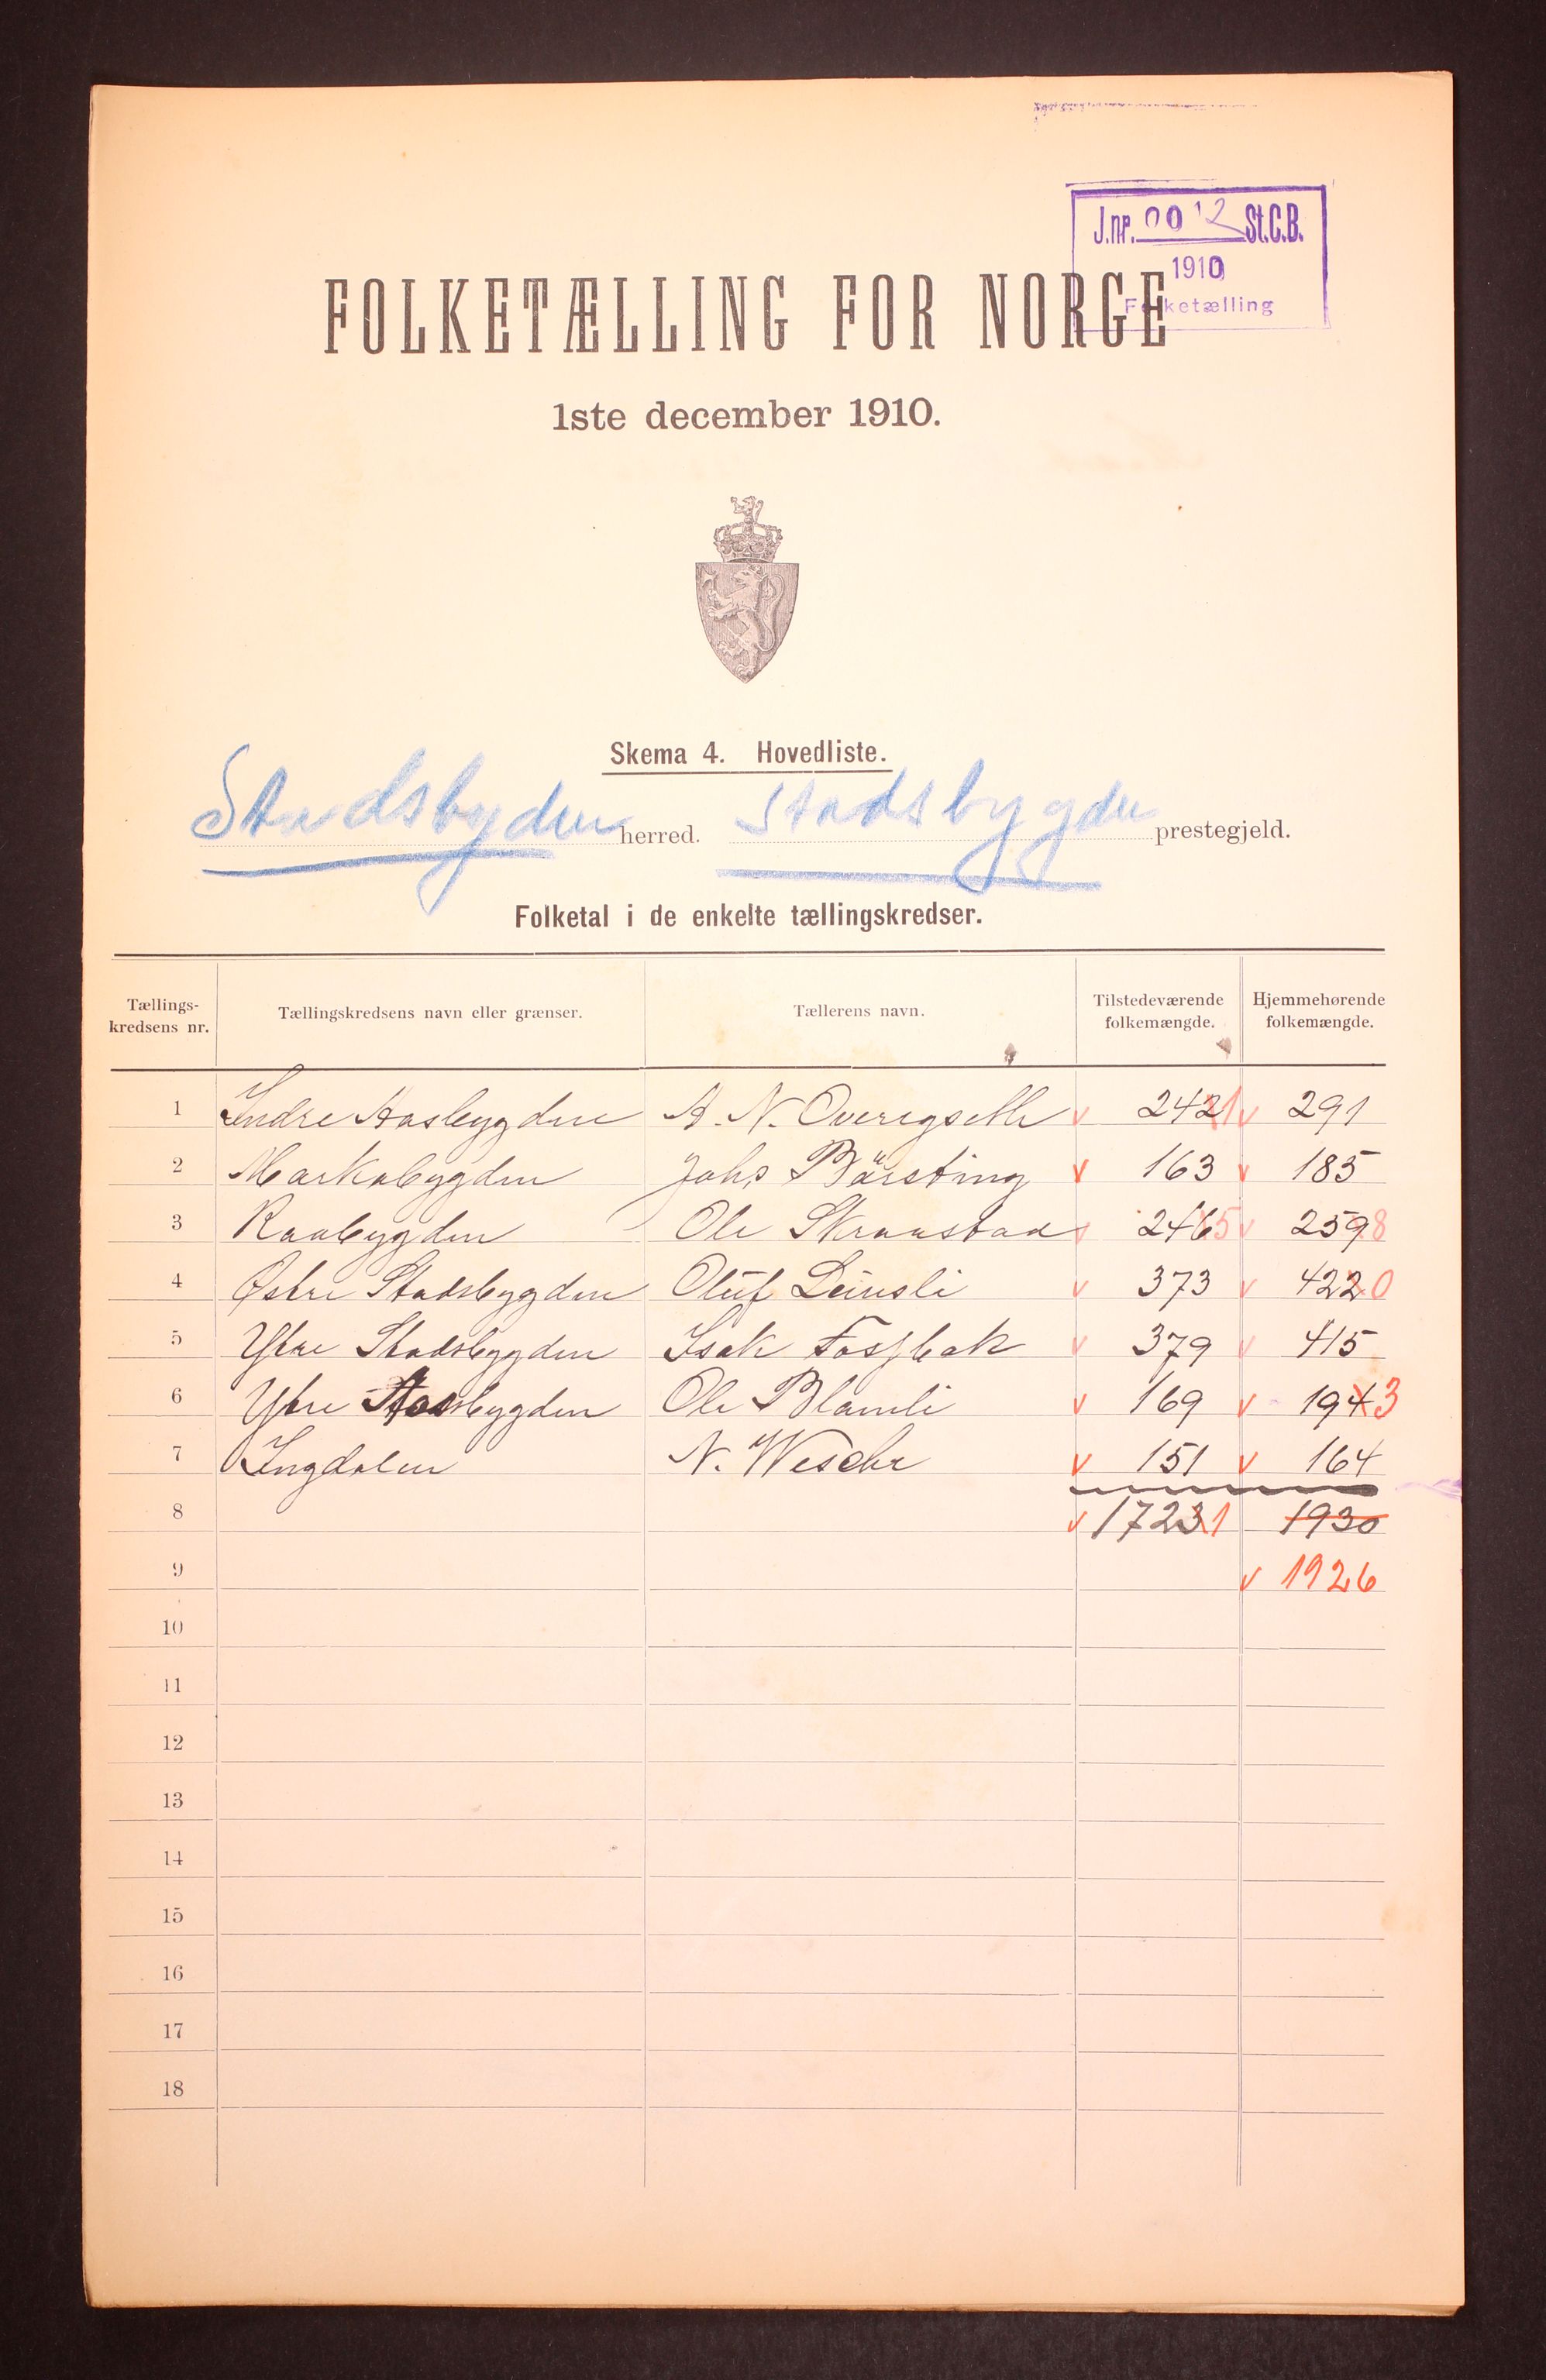 J.nr. 0012 St.C.B.
1910
Folketælling
FOLKETÆLLING FOR NORGE
1ste december 1910.
Skema 4. Hovedliste.
Stadsbygden herred. Stadsbygden prestegjeld.
Folketal i de enkelte tællingskredser.
Tællings-kredsens nr. Tællingskredsens navn eller grænser. Tællerens navn. Tilstedeværende folkemængde. Hjemmehørende folkemængde.
1 Indre Aasbygden A. N. v 2421 v 291
2 Markabygden Johs Børsting v 163 v 185
3 Raabygden Ole Skraastad v 2465 v 2598
4 Østre Stadsbygden Oluf Leinsli v 373 v 4220
5 Ytre Stadsbygden Isak Fossbak v 379 v 415
6 Ytre Aasbygden Ole Blamli v 169 v 1943
7 Ingdalen N. v 151 v 164
8 v 17231 1930
9 v 1926
10
11
12
13
14
15
16
17
18